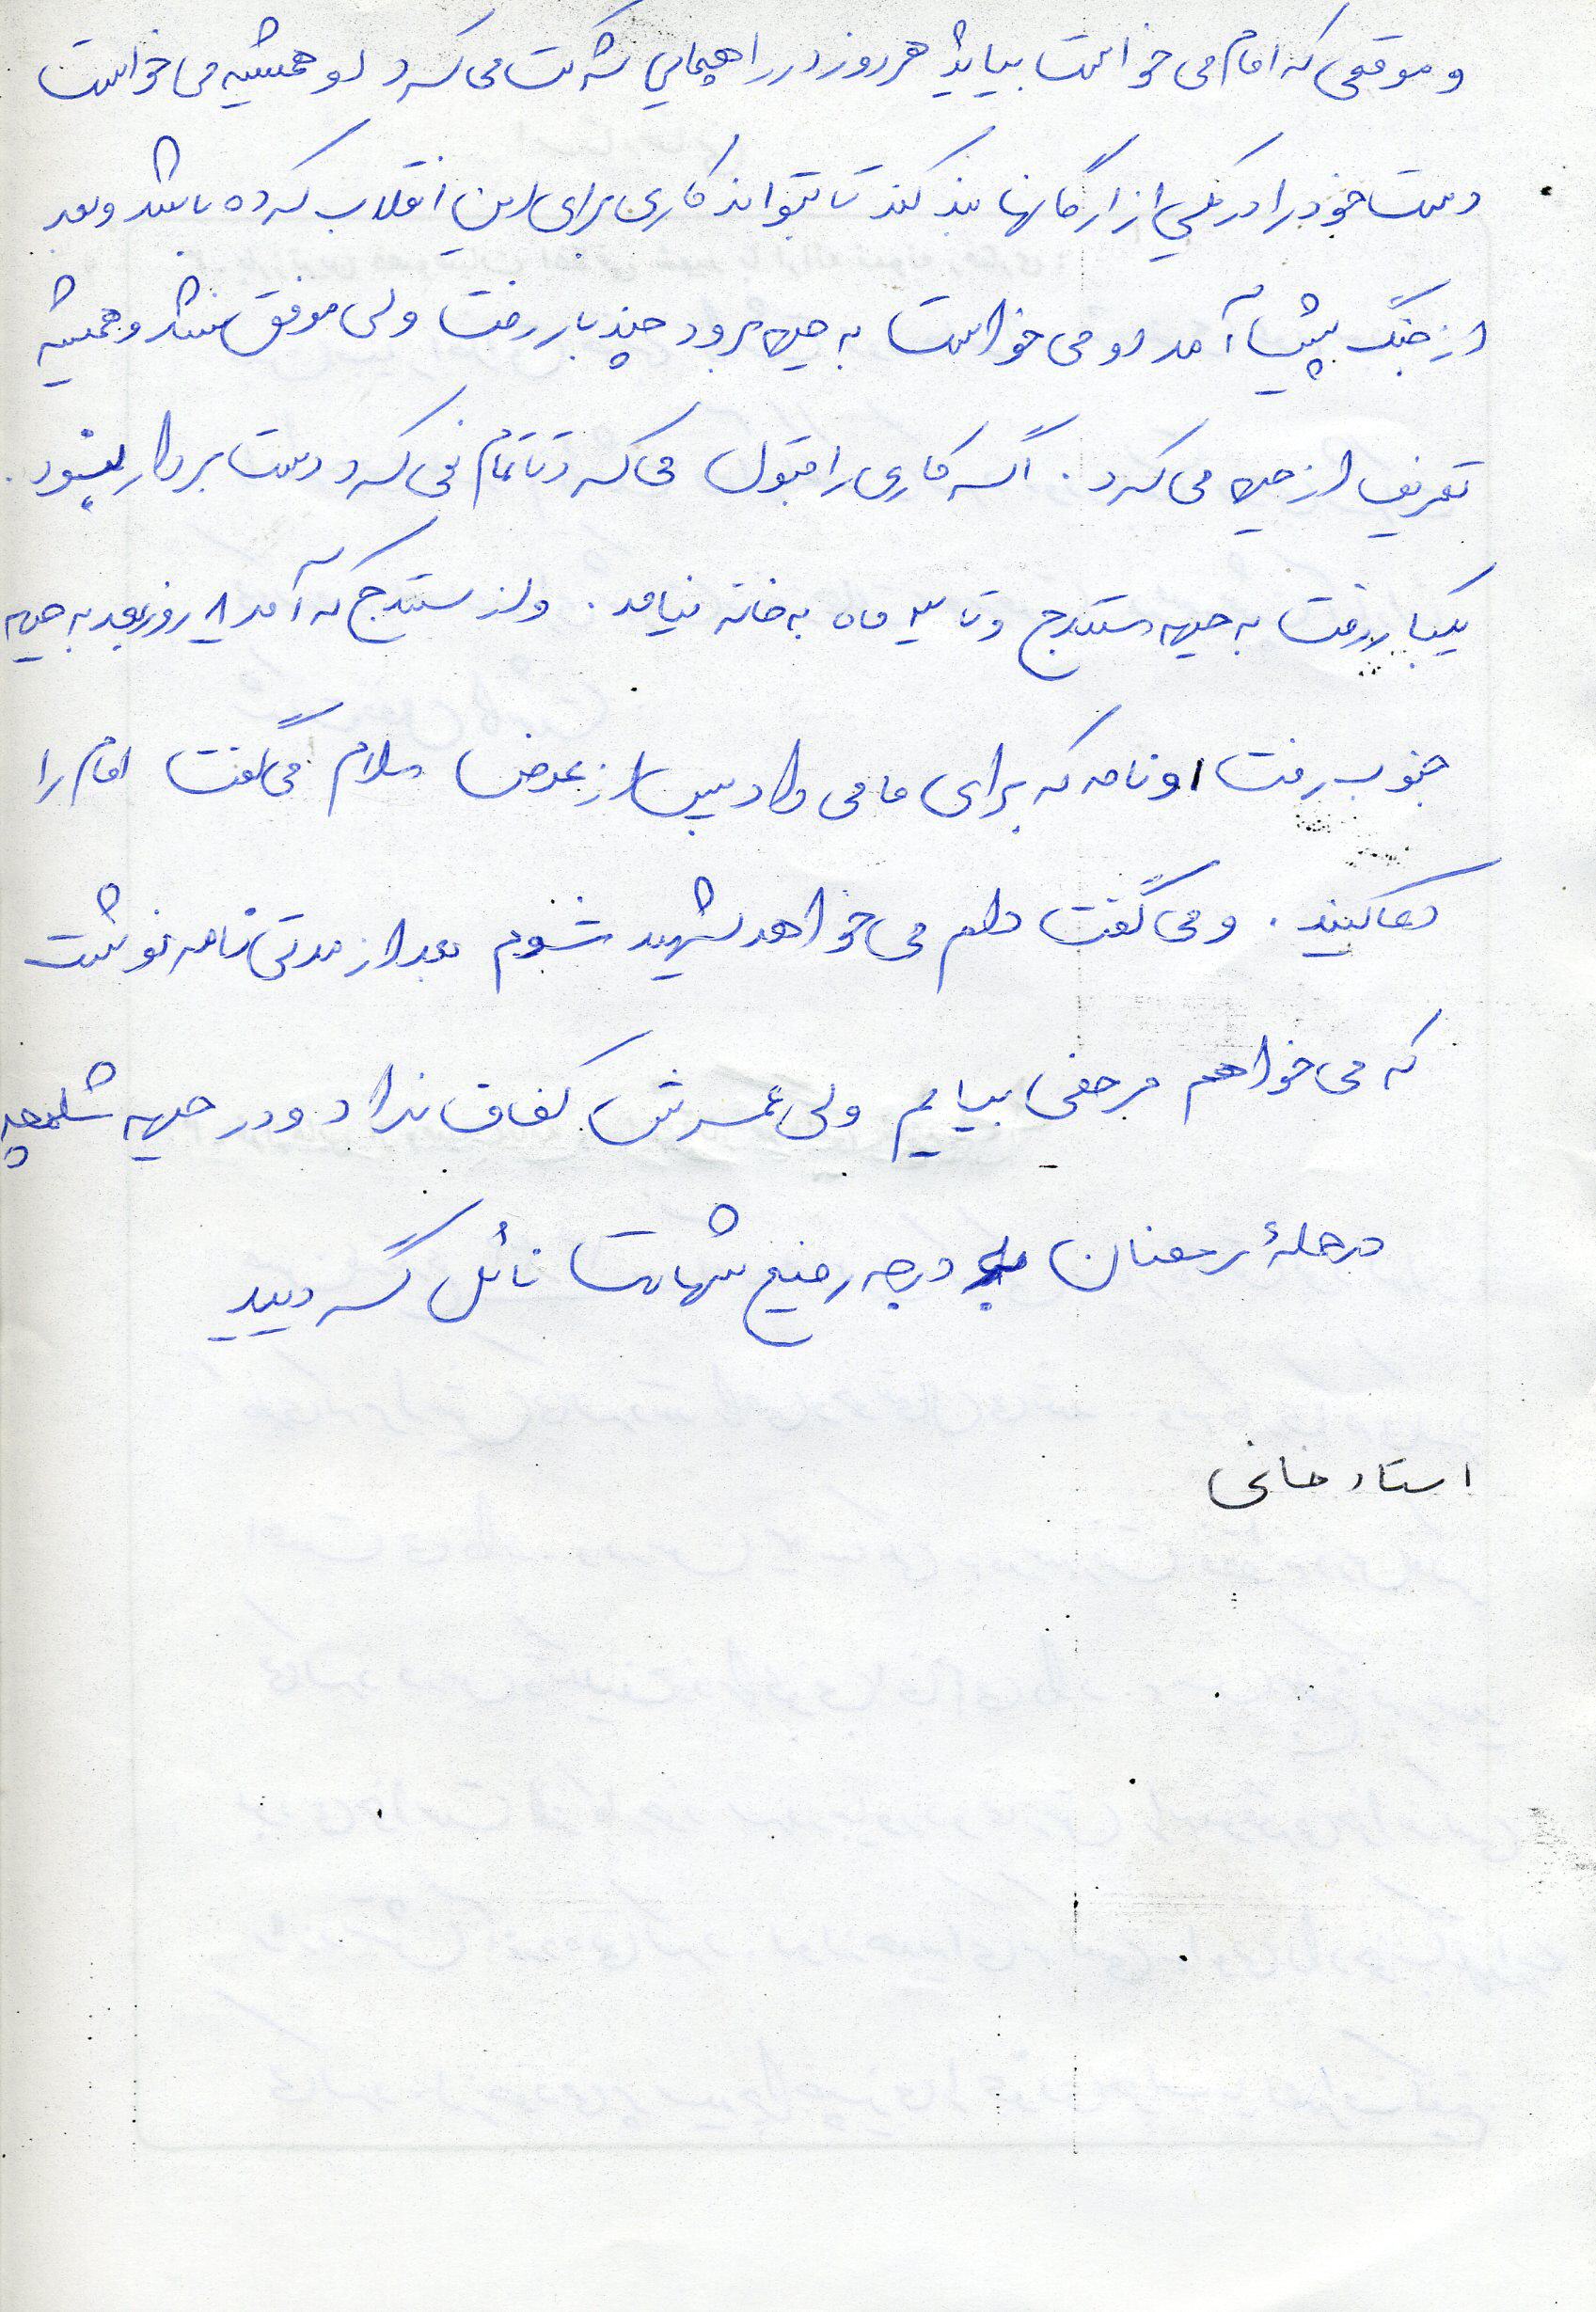 و موقعی که امام می خواست بیاید هر روز در راهپمایی شرکت می کرد او همیشه می خواست
دست خود را در یکی از ارگانها بند کند تا بتواند کاری برای این انقلاب کرده باشد و بعد
از جنگ پیش آمد او می خواست به جبهه برود چند بار رفت ولی موفق نشد و همیشه
تعریف از جبهه می کرد . اگر کاری را قبول می کرد تا تمام نمی کرد دست بردار نبود .
یکبار رفت به جبهه سنندج و تا سه ماه به خانه نیامد . و از سنندج که آمد ۸ روز بعد به جبهه
جنوب رفت او نامه که برای ما می داد پس از عرض سلام می گفت امام را
دعا کنید . و می گفت دلم می خواهد شهید شوم بعد از مدتی نامه نوشت
که می خواهم مرخصی بیایم ولی عمرش کفاف نداد و در جبهه شلمچه
در حملهٔ رمضان به درجه رفیع شهادت نائل گردید
استاد خانی